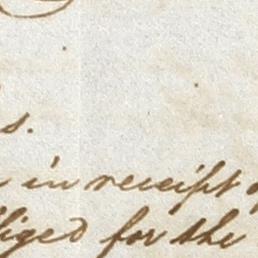 s.
in receipt
liged for the